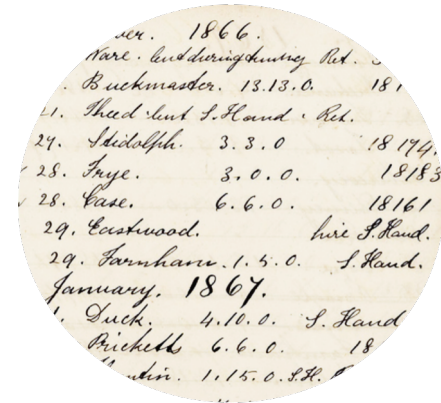 ver. 1866.
Ware. lent during tuning Ret. S
Buckmaster. 13.13.0. 181
21. Theed lent S. Hand. Ret.
27. Stidolph. 3.3.0 18174.
28. Frye. 3.0.0. 18183
28. Case. 6.6.0. 18161
29. Eastwood. hire S. Hand.
29. Farnham. 1.5.0. S. Hand.
January. 1867.
1. Duck. 4.10.0. S. Hand
Pricketts 6.6.0. 18
1.15.0. S.H.